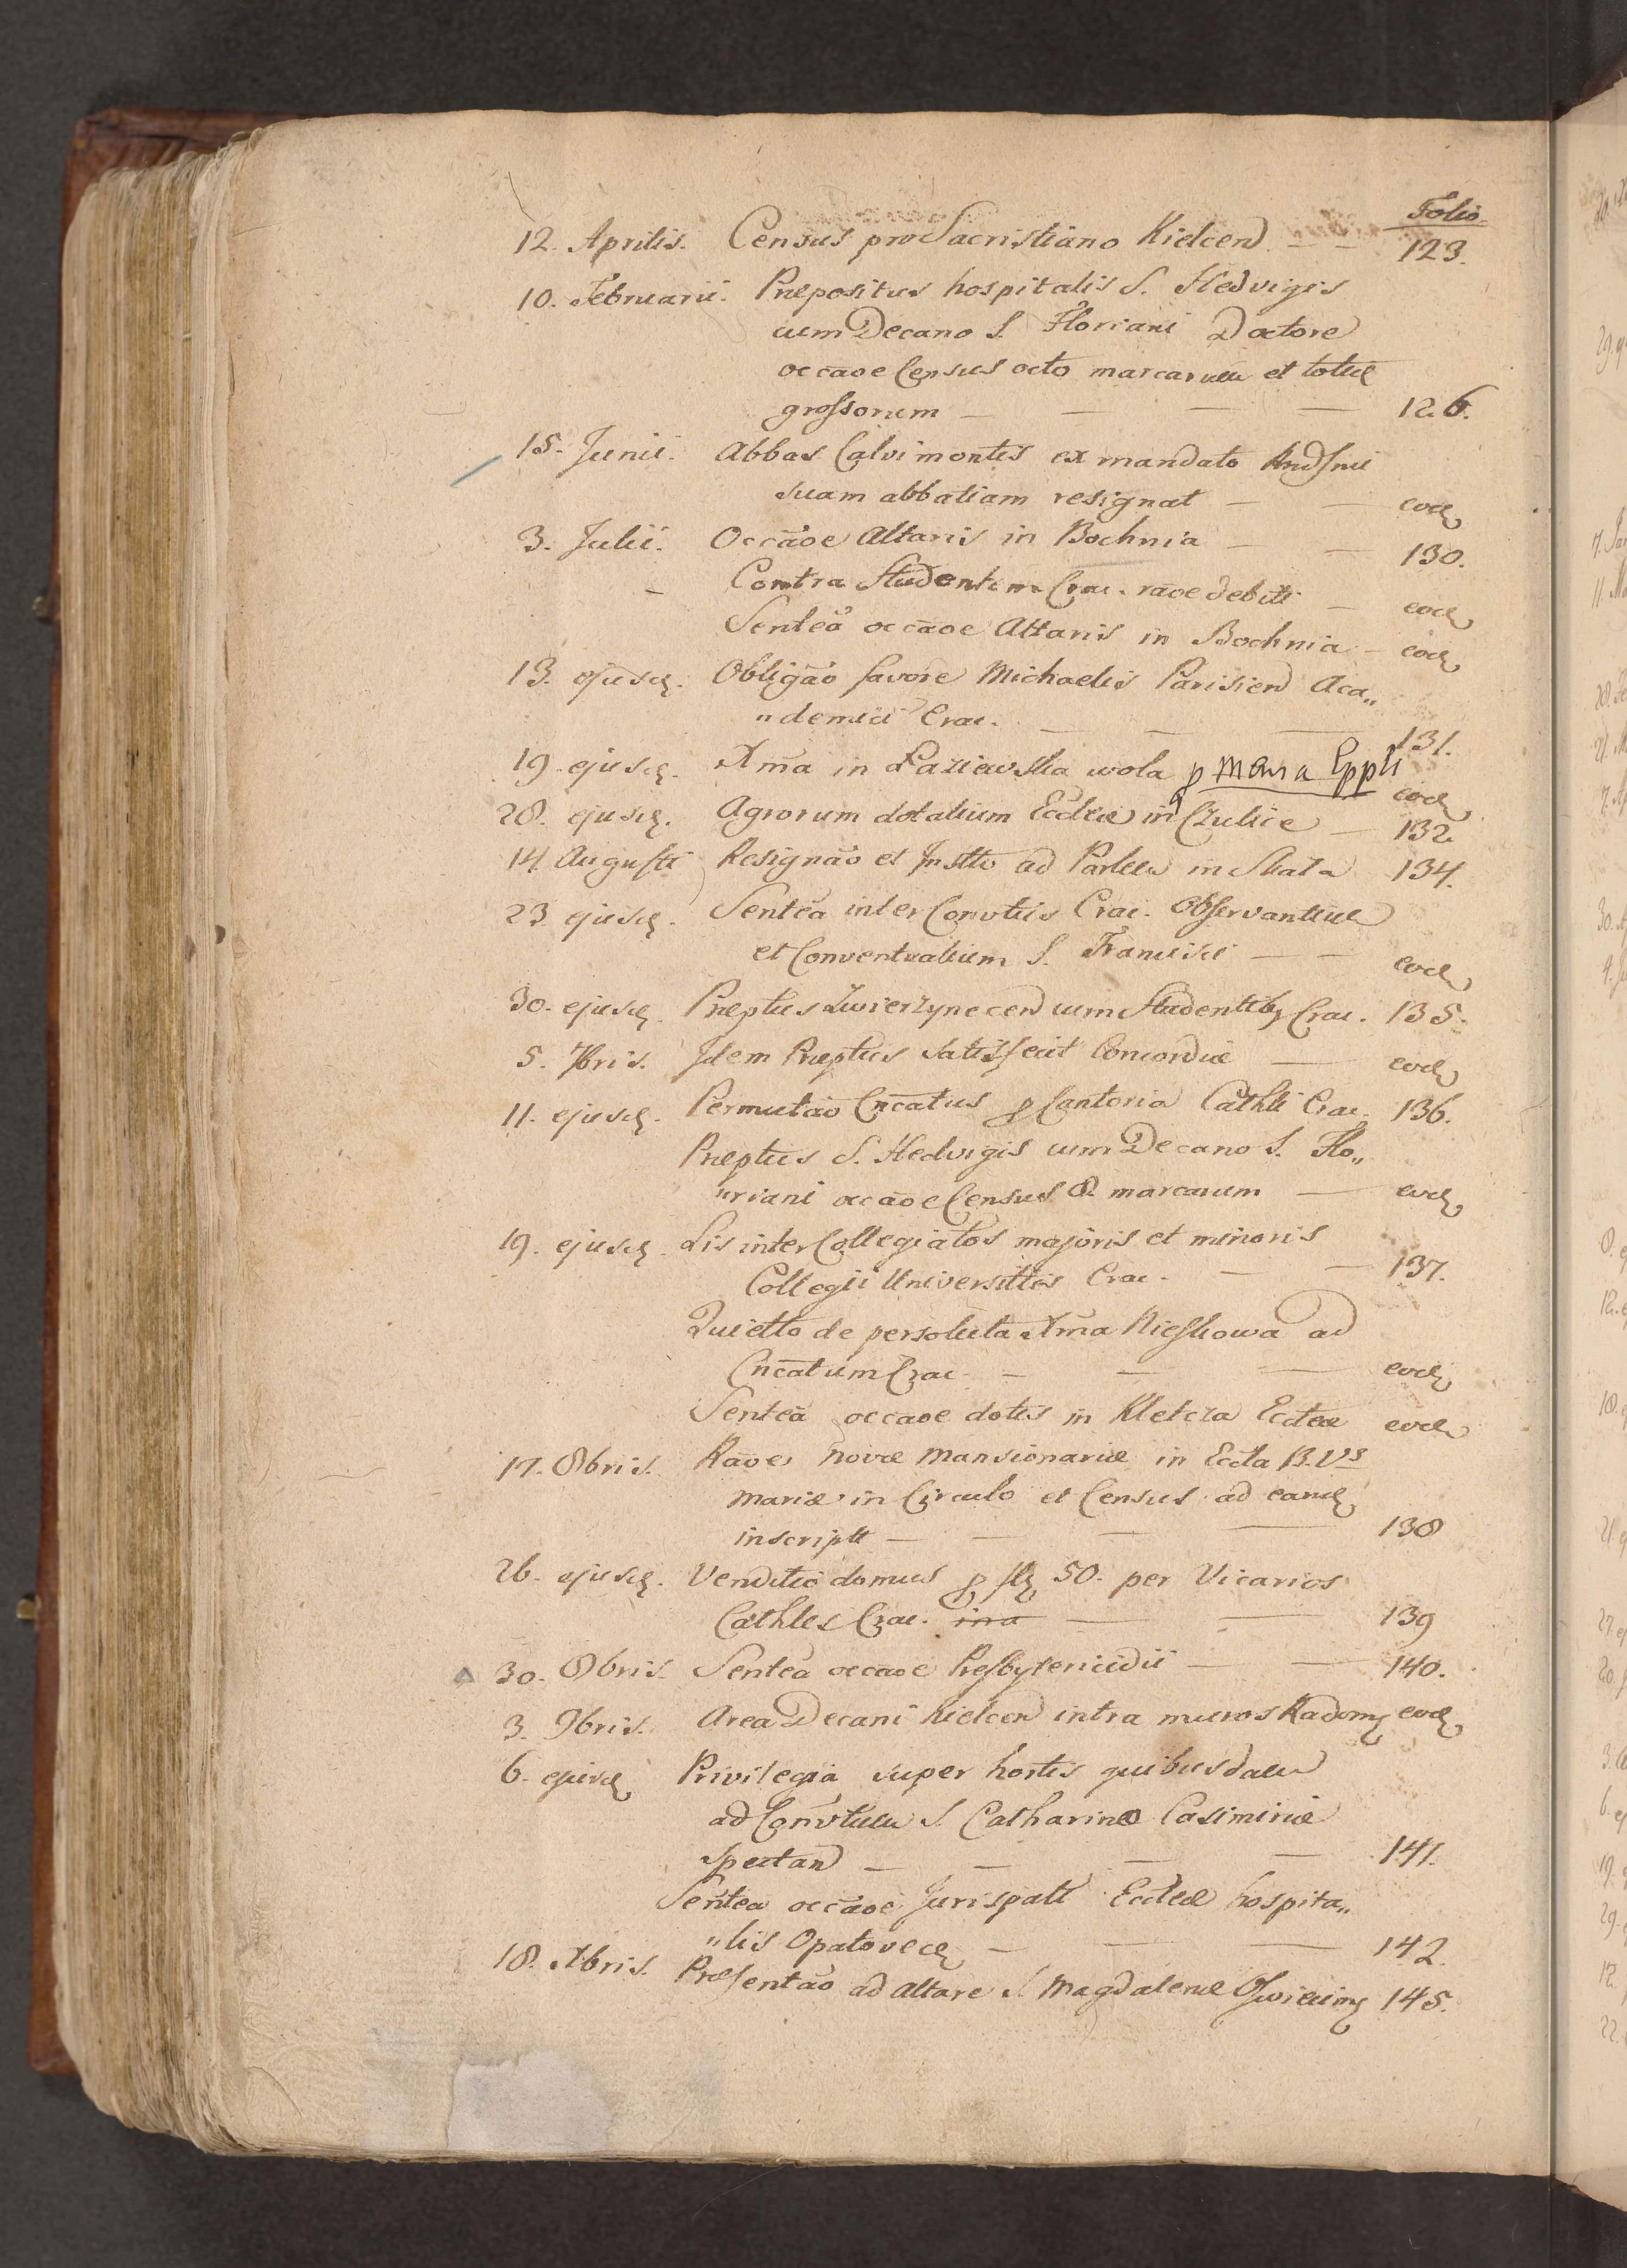 Folio
12. Aprilis. Census pro Sacristiano Kielcen 123.
10. Februarii. Præpositus hospitalis S. Hedvigis
cum Decano S. Floriani Doctore
occãoe Census octo marcarum et totid
grossorum 126.
15. Junii. Abbas Calvi montis ex mandato
suam abbatiam resignat eod
3. Julii. Occãoe Altaris in Bochnia 130.
Contra Studentem Crac. rãoe debiti eod
Senteã occãoe Altaris in Bochnia eod
13. ejusd. Obligão favore Michaelis Parisien Aca„
„demici Crac. 131.
19. ejusd. Xma in Łaziewska wola p mensa Eppli eod
28. ejusd. Agrorum dotalium Ecclæ in Czulice 132
14. Augusti Resignão et Instto ad Parlem in Skała 134.
23 ejusd. Senteã inter Convtus Crac. Observantiæ
et Conventualium S. Francisci eod
30. ejusd. Præptus Zwierzynecen cum Studentibz Crac. 135.
5. 7bris. Idem Præptus satisfecit Concordiæ eod
11. ejusd. Permutão Cncatus p Cantoria Cathli Crac. 136.
Præptus S. Hedvigis cum Decano S. Flo„
„riani occãoe Census 8 marcarum eod
19. ejusd. Lis inter Collegiatos majoris et minoris
Collegii Universittis Crac. 137.
Quietto de persoluta Xma Kieskowa ad
Cncatum Crac. eod
Senteã occãoe dotis in Kletcza Eclæ eod
17. 8bris. Rãoe novæ Mansionariæ in Eccla B. Vs
Mariæ in Circulo et Census ad eand
inscript 138
26. ejusd. Venditio domus p flz 50. per Vicarios
Cathles Crac. ina 139
30. 8bris. Senteã occãoe Presbytericidii 140.
3. 9bris. Area Decani Kielcen intra muros Radom eod
6. ejusd Privilegia super hortis quibusdam
ad Convtum S. Catharinæ Casimiriæ
spectan 141.
Senteã occãoe Jurispatt Eclæ hospita„
„lis Opatovec 142.
18. Xbris. Præsentão ad altare S. Magdalenæ Oswiecim 145.